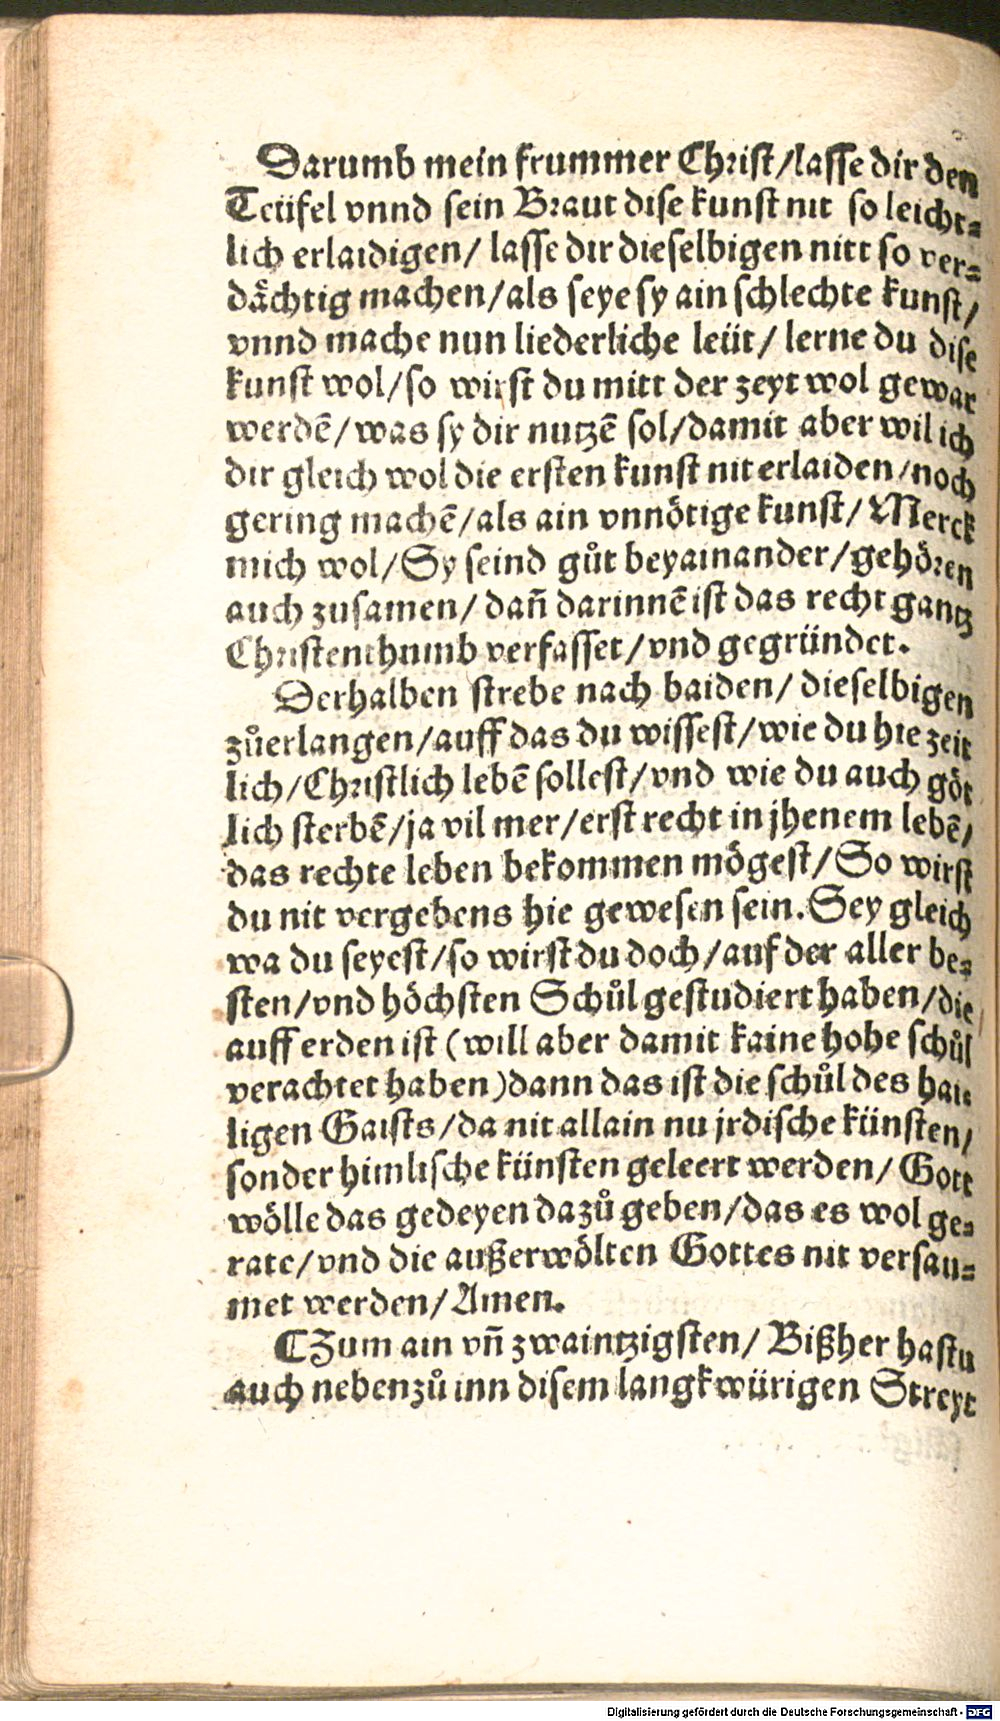 Darumb mein frummer Christ/lasse dir den
Teüfel vnnd sein Braut dise kunst nit so leicht⸗
lich erlaidigen/ lasse dir dieselbigen nitt so ver⸗
dåchtig machen/als seye sy ain schlechte kunst/
vnnd mache nun liederliche leüt/ lerne du dise
kunst wol/so wirst du mitt der zeyt wol gewar
werdē/was sy dir nutzē sol/damit aber wil ich
dir gleich wol die ersten kunst nit erlaiden/noch
gering machē/als ain vnnötige kunst/ Merck
mich wol/Sy seind gůt beyainander/gehören
auch zusamen/ dañ darinnē ist das recht gantz
Christenthumb verfasset/vnd gegründet.
Derhalben strebe nach baiden/ dieselbigen
zůerlangen/auff das du wissest/wie du hie zeit
lich/Christlich lebē sollest/vnd wie du auch göt
lich sterbē/ja vil mer/erst recht in jhenem lebē/
das rechte leben bekommen mögest/So wirst
du nit vergebens hie gewesen sein. Sey gleich
wa du seyest/so wirst du doch/auf der aller be⸗
sten/vnd höchsten Schůl gestudiert haben/die
auff erden ist (will aber damit kaine hohe schůl
verachtet haben)dann das ist die schůl des hai
ligen Gaists/da nit allain nu jrdische künsten/
sonder himlische künsten geleert werden/ Gott
wölle das gedeyen dazů geben/das es wol ge⸗
rate/vnd die außerwölten Gottes nit versau⸗
met werden/Amen.
⸿Zum ain vñ zwaintzigsten/ Bißher hastu
auch nebenzů inn disem langkwürigen Streyt
Digitalisierung gefördert durch die Deutsche Forschungsgemeinschaft - DFG